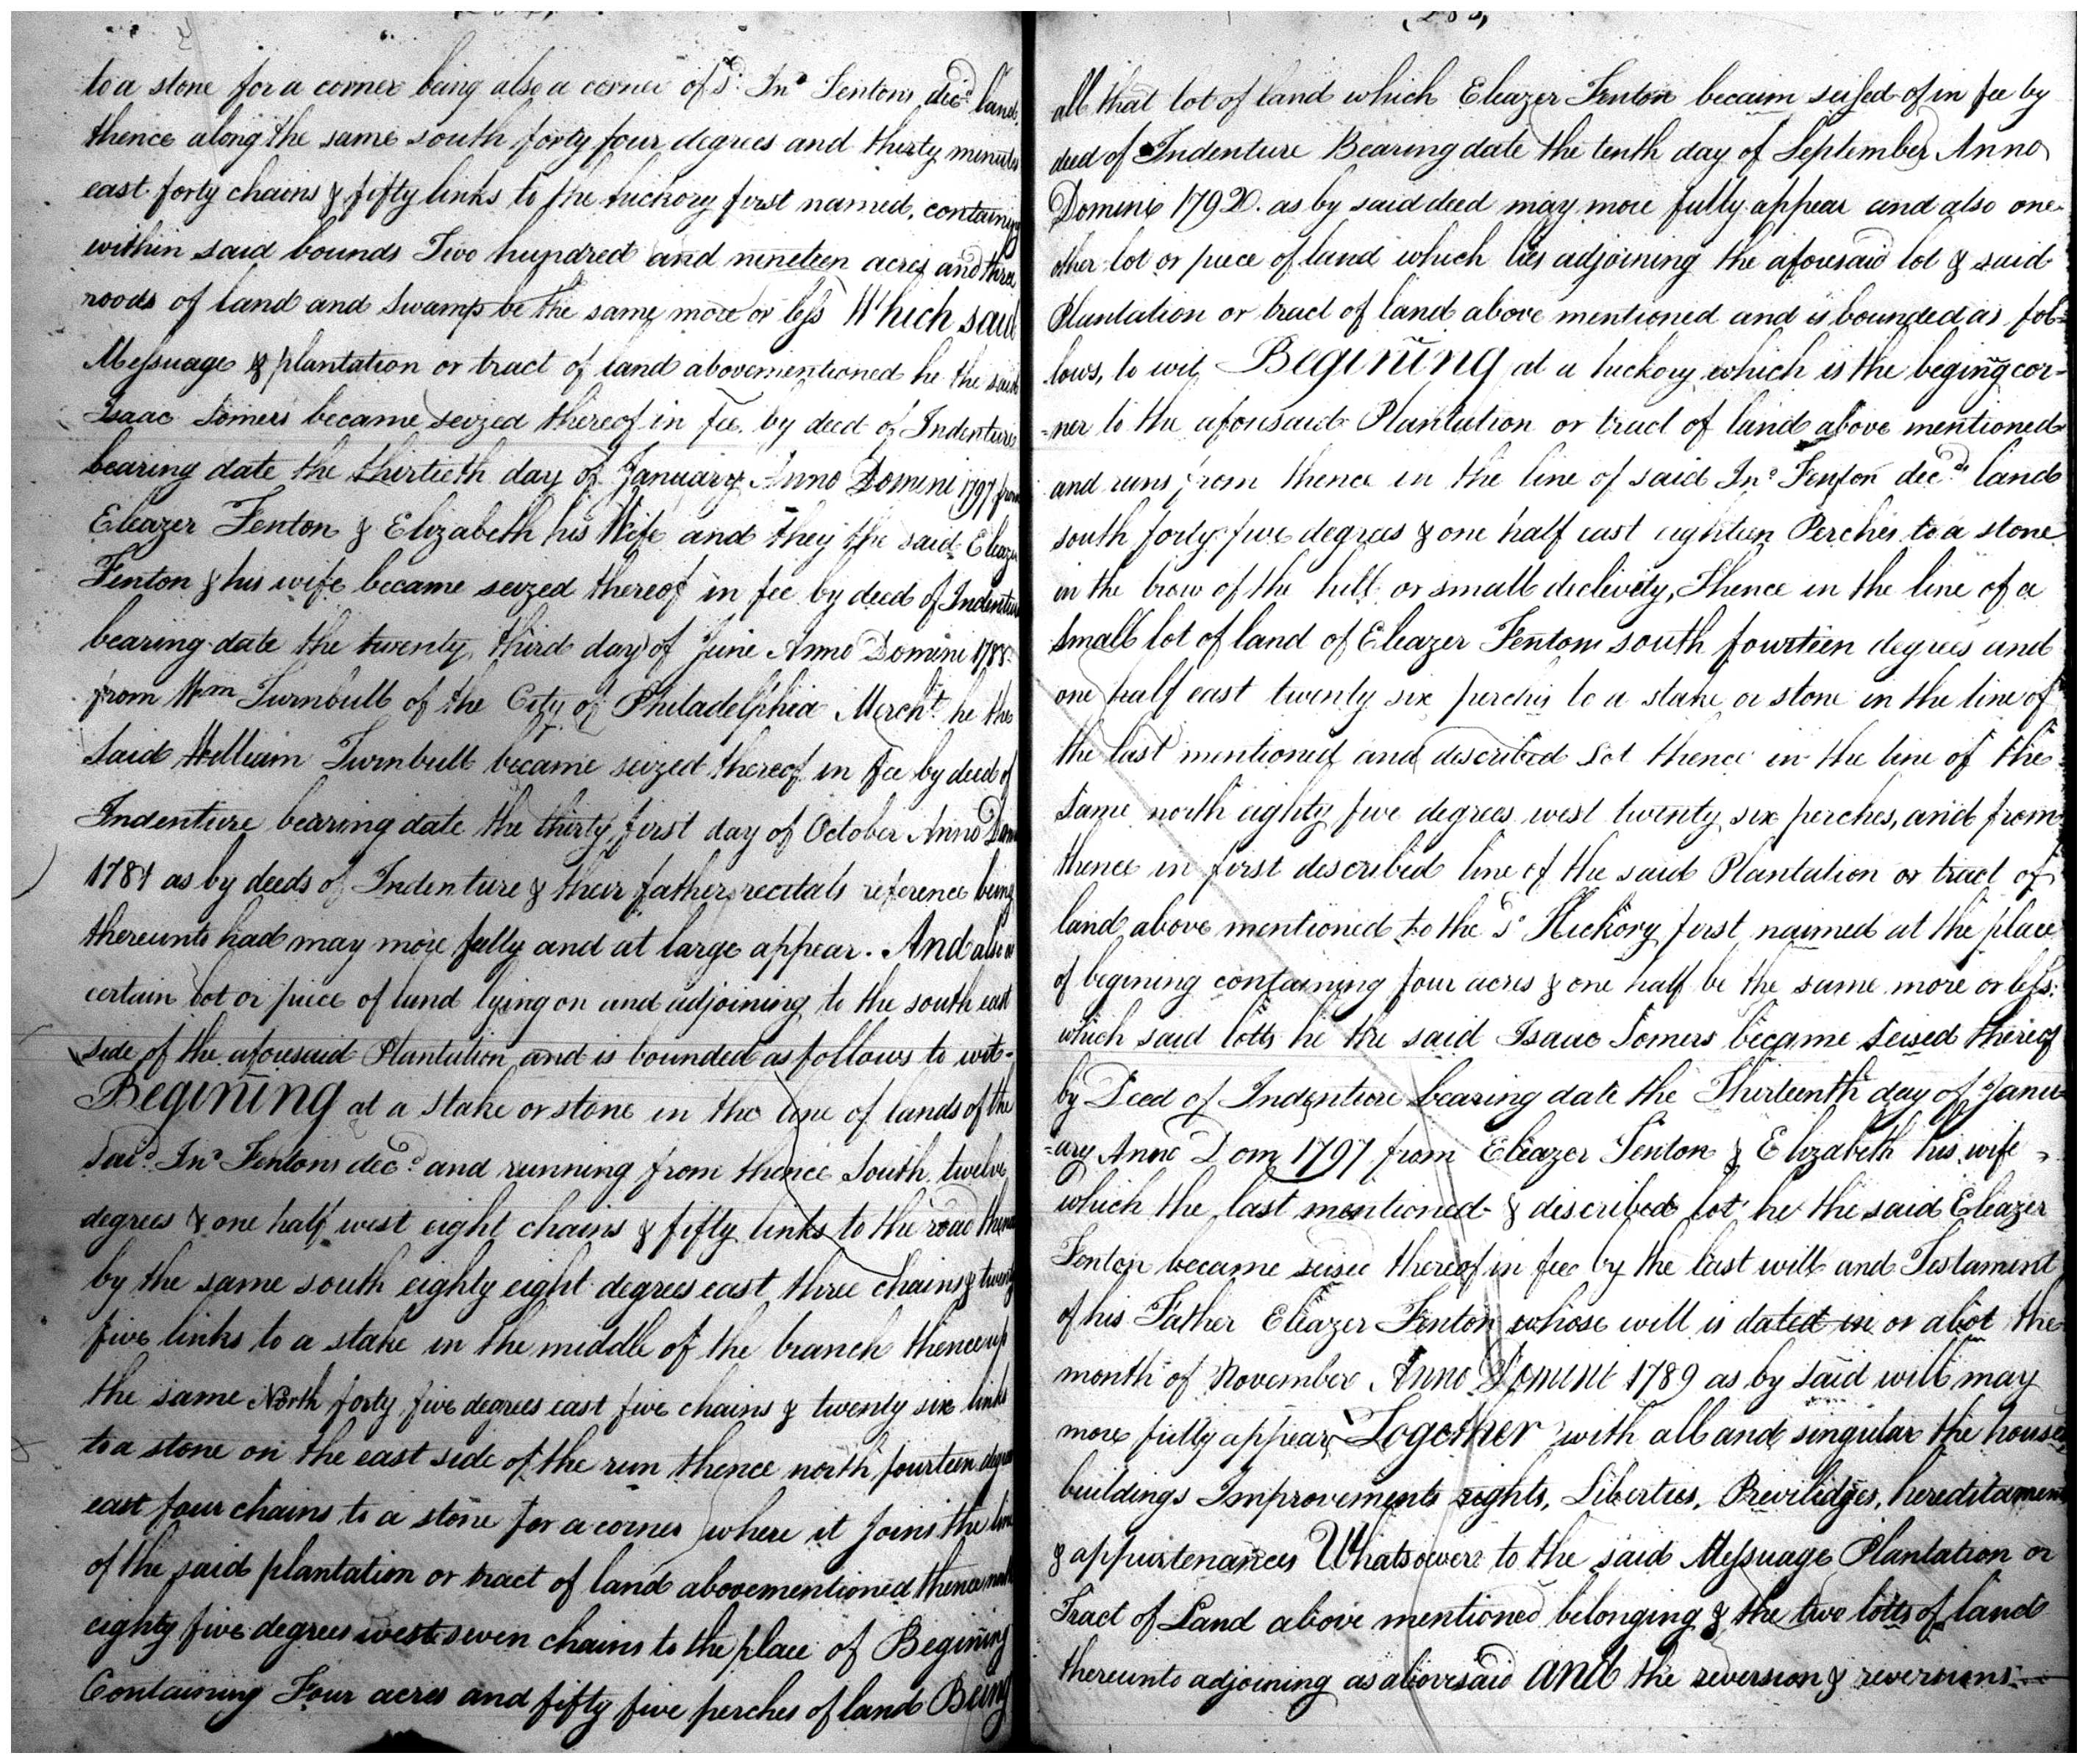 to a stone for a corner being also a corner of sd. Jno Fentons decd land,
thence along the same south forty four degrees and thirty minutes
east forty chains & fifty links to the hickory first named, containing
within said bounds Two hundred and nineteen acres and three
roods of land and swamp be the same more or less Which said
Messuage & plantation or tract of land abovementioned he the said
Isaac Somers became seized thereof in fee by deed of Indenture
bearing date the thirtieth day of January Anno Domini 1797 from
Eleazer Fenton & Elizabeth his Wife and they the said Eleazer
Fenton & his wife became seized thereof in fee by deed of Indenture
bearing date the twenty third day of June Anno Domini 1788
from Wm Turnbull of the City of Philadelphia Mercht. he the
said William Turnbull became seized thereof in fee by deed of
Indenture bearing date the thirty first day of October Anno Dom
1784 as by deeds of Indenture & their father recitals reference being
thereunto had may more fully and at large appear. And also a
certain lot or piece of land lying on and adjoining to the south east
side of the aforesaid Plantation and is bounded as follows to wit-
Begining at a stake or stone in the line of lands of the
said Jno Fentons decd and running from thence South twelve
degrees & one half west eight chains & fifty links to the road thence
by the same south eighty eight degrees east three chains & twenty
five links to a stake in the middle of the branch thence up
the same North forty five degrees east five chains & twenty six links
to a stone on the east side of the run thence north fourteen degrees
east four chains to a stone for a corner where it joins the line
of the said plantation or tract of land abovementioned thence north
eighty five degrees west seven chains to the place of Begining
Containing Four acres and fifty five perches of land Being
all that lot of land which Eleazer Fenton becaim seised of in fee by
deed of Indenture Bearing date the tenth day of September Anno
Domini 1792. as by said deed may more fully appear and also one
other lot or piece of land which lies adjoining the aforesaid lot & said
Plantation or tract of land above mentioned and is bounded as fol=
lows, to wit Begining at a hickory which is the begining cor=
=ner to the aforesaid Plantation or tract of land above mentioned
and runs from thence in the line of said Jno Fenton decd. land
south forty five degrees & one half east eighteen Perches to a stone
in the brow of the hill or small declivety, Thence in the line of a
small lot of land of Eleazer Fentons south fourteen degrees and
one half east twenty six perches to a stake or stone in the line of
the last mentioned and described Lot thence in the line of the
same north eighty five degrees west twenty six perches, and from
thence in first described line of the said Plantation or tract of
land above mentioned to the sd Hickory first naimed at the place
of begining containing four acres & one half be the same more or less:
which said lotts he the said Isaac Somers became seised thereof
by Deed of Indenture bearing date the Thirteenth day of Janu=
=ary Anno Dom 1797 from Eleazer Fenton & Elizabeth his wife
which the last mentioned & described lot he the said Eleazer
Fenton became seised thereof in fee by the last will and Testament
of his Father Eleazer Fenton whose will is dated in or abot the
month of November Anno Domini 1789 as by said will may
more fully appear Together with all and singular the houses
buildings Improvements rights, Liberties, Previlidges, hereditaments
& appurtenances Whatsoever to the said Messuage Plantation or
Tract of Land above mentioned belonging & the two lotts of land
thereunto adjoining as abovesaid and the reversion & reversions